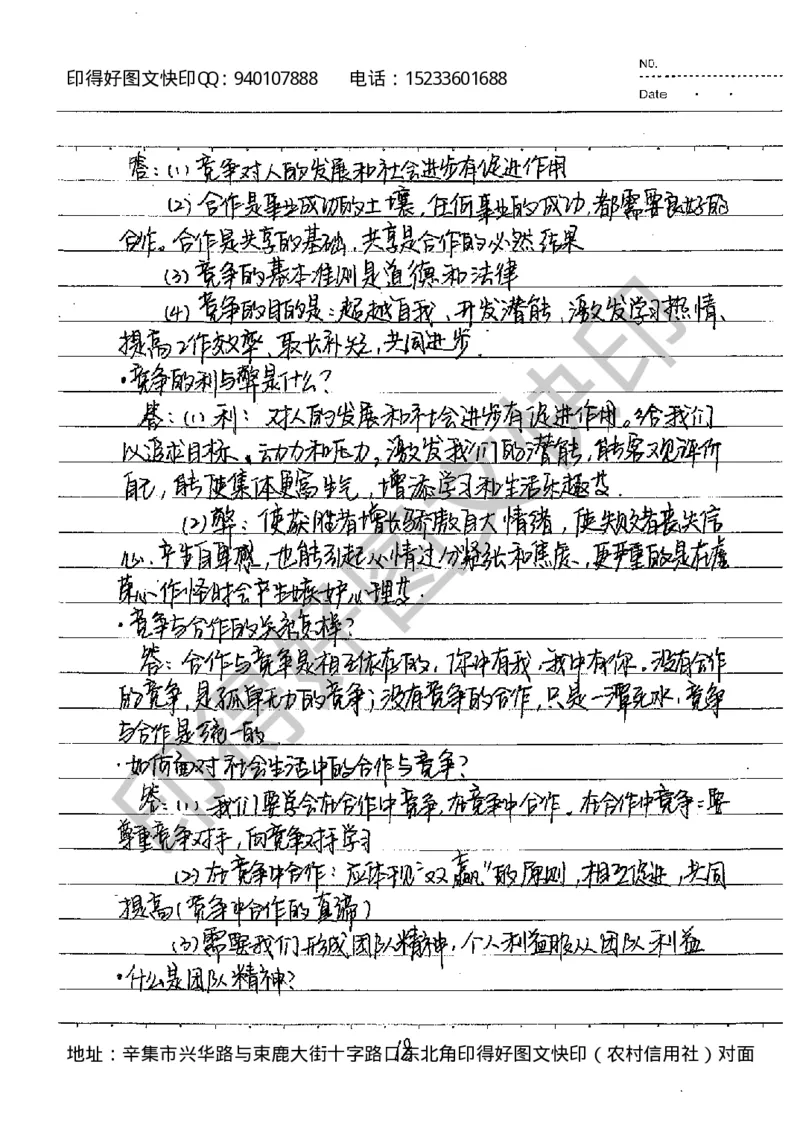 NO.
印得好图文快印QQ：940107888 电话：15233601688
Date · ·
答：(1) 竞争对人的发展和社会进步有促进作用
(2) 合作是事业成功的土壤，任何事业的成功，都需要良好的
合作。合作是共享的基础，共享是合作的必然结果
(3) 竞争的基本准则是道德和法律
(4) 竞争的目的是：超越自我、开发潜能，激发学习热情、
提高工作效率、取长补短，共同进步.
·竞争的利与弊是什么？
答：(1) 利：对人的发展和社会进步有促进作用。给我们
以追求目标、动力和压力，激发我们的潜能，能客观评价
自己，能使集体更富生气，增添学习和生活乐趣
(2) 弊：使获胜者增长骄傲自大情绪，使失败者丧失信
心.产生自卑感，也能引起心情过分紧张和焦虑、更严重的是在虚
荣心作怪时会产生嫉妒心理
·竞争与合作的关系怎样？
答：合作与竞争是相互依存的，你中有我，我中有你。没有合作
的竞争，是孤单无力的竞争；没有竞争的合作，只是一潭死水，竞争
与合作是统一的
·如何面对社会生活中的合作与竞争？
答：(1) 我们要学会在合作中竞争，在竞争中合作。在合作中竞争：要
尊重竞争对手，向竞争对手学习
(2) 在竞争中合作：应体现“双赢”的原则，相互促进，共同
提高（竞争中合作的真谛）
(3) 需要我们形成团队精神，个人利益服从团队利益
·什么是团队精神？
18
地址：辛集市兴华路与束鹿大街十字路口东北角印得好图文快印（农村信用社）对面
印得好图文快印